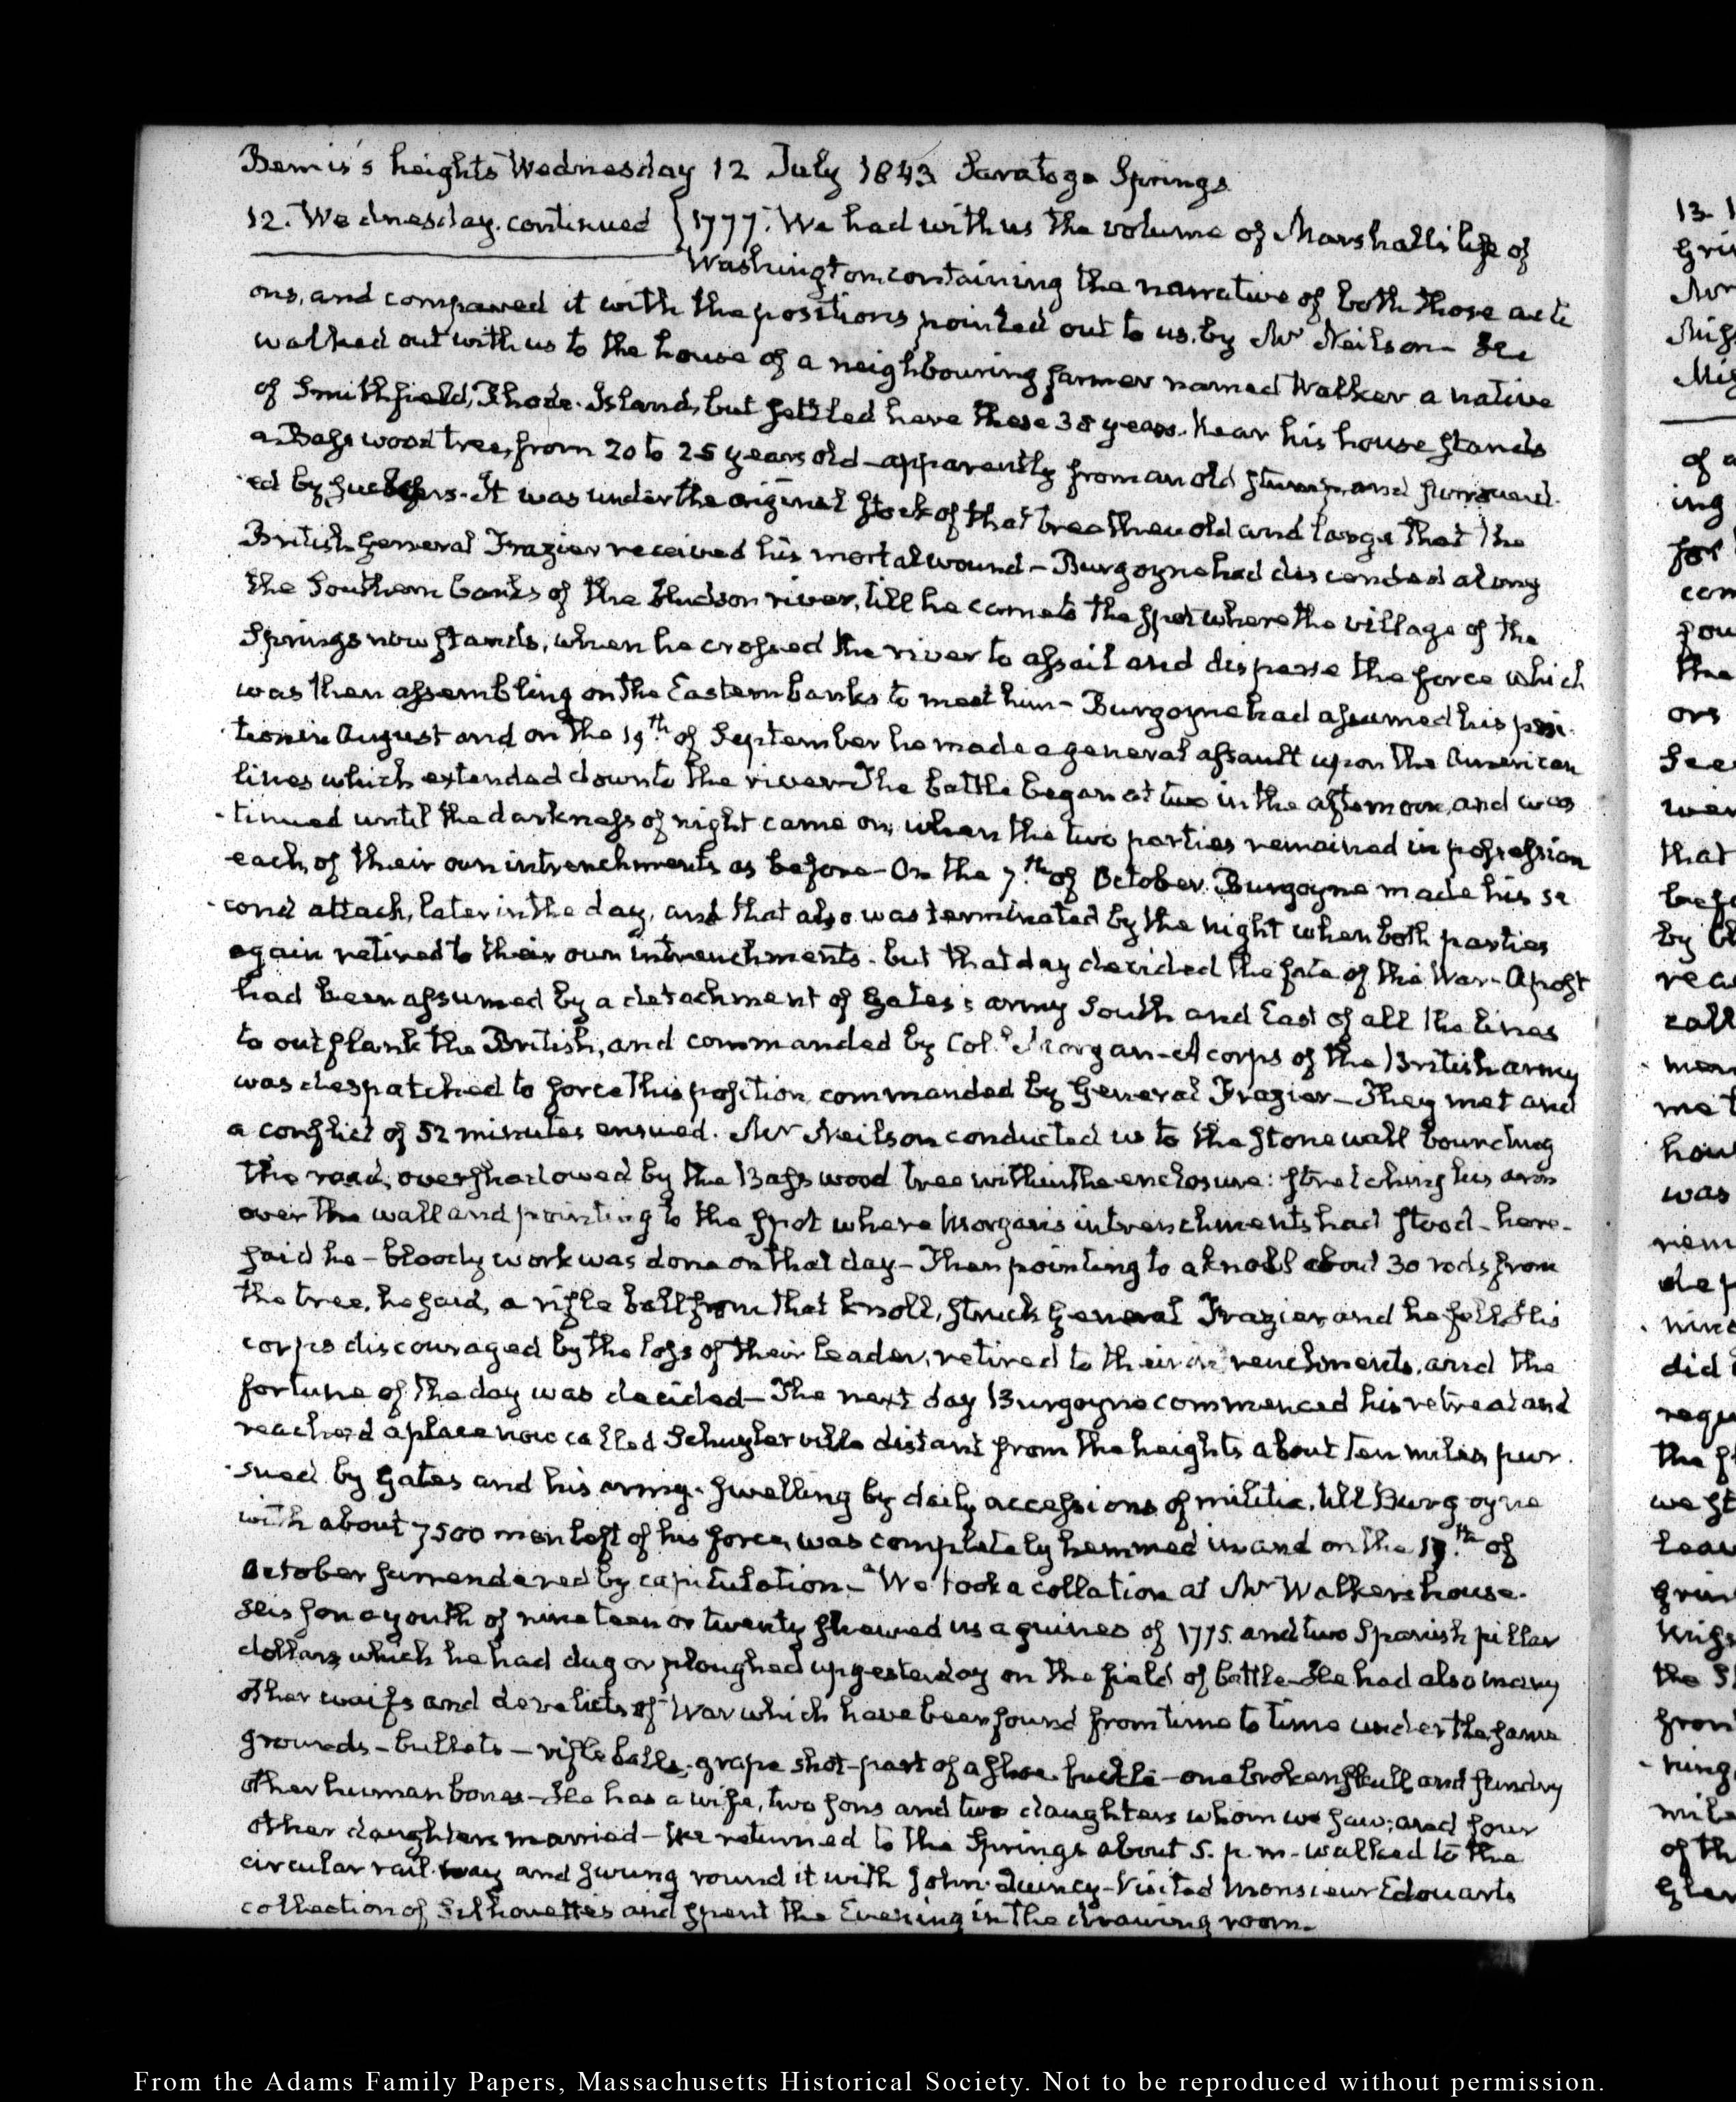 Bemis's heights Wednesday 12 July 1843 Saratoga Springs
12. Wednesday. continued } 1777. We had with us the volume of Marshall's life of
Washington containing the narrative of both those acti
ons, and compared it with the positions pointed out to us, by Mr Neilson— He
walked out with us to the house of a neighbouring farmer named Walker a native
of Smithfield, Rhode-Island, but settled here these 38 years. Near his house stands
a Bass wood tree, from 20 to 25 years old—apparently from an old stump and surround-
ed by suckers. It was under the original stock of that tree then old and large that the
British General Frazier received his mortal wound—Burgoyne had descended along
the Southern banks of the Hudson river, till he came to the spot where the village of the
Springs now stands, when he crossed the river to assail and disperse the force which
was then assembling on the Eastern banks to meet him—Burgoyne had assumed his posi-
tion in August and on the 19th of September he made a general assault upon the American
lines which extended down to the river—The battle began at two in the afternoon, and was
-tinued until the darkness of night came on, when the two parties remained in possession
each, of their own intrenchments as before—On the 7th of October Burgoyne made his se
-cond attack, later in the day, and that also was terminated by the night when both parties
again retired to their own intrenchments. but that day decided the fate of the War—A post
had been assumed by a detachment of Gates's army South and East of all the lines
to outflank the British, and commanded by Col.o Morgan—A corps of the British army
was despatched to force this position commanded by General Frazier—They met and
a conflict of 52 minutes ensued. Mr Neilson conducted us to the stone wall bounding
the road, overshadowed by the Bass wood tree within the enclosure: stretching his arm
over the wall and pointing to the spot where Morgan's intrenchments had stood—here-
said he—bloody work was done on that day—Then pointing to a knoll about 30 rods from
the tree, he said, a rifle ball from that knoll, struck General Frazier, and he fell. His
corps discouraged by the loss of their leader, retired to their intrenchments, and the
fortune of the day was decided—The next day Burgoyne commenced his retreat and
reached a place now called Schuylerville distant from the heights about ten miles pur-
-sued by Gates and his army. swelling by daily accessions of militia, till Burgoyne
with about 7500 men left of his force, was completely hemmed in and on the 17th of
October surrendered by capitulation—We took a collation at Mr Walker's house.
His son a youth of nineteen or twenty shewed us a guinea of 1775. and two Spanish pillar
dollars, which he had dug or ploughed up yesterday on the field of battle—He had also many
other waifs and derelicts of War which have been found from time to time under the same
grounds—bullets—rifle balls, grape shot—part of a shoe buckle—one broken skull and sundry
other human bones—He has a wife, two sons and two daughters whom we saw; and four
other daughters married—We returned to the Springs about 5. p.m.—walked to the
circular rail-way and swung round it with John-Quincy—Visited Monsieur Edouarts
collection of Silhouettes and spent the Evening in the drawing room—
From the Adams Family Papers, Massachusetts Historical Society. Not to be reproduced without permission.